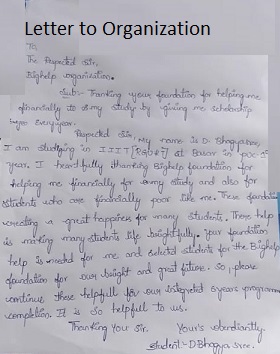 Letter to Organization
To,
The Respected Sir,
Bighelp organization.
Sub:- Thanking your foundation for helping me
financially to my study by giving me scholarship
every year.
Respected Sir, My name is D. Bhagyasree,
I am studying in IIIT [RGUKT] at Basar in puc-2
year. I heartfully thanking Bighelp foundation for
helping me financially for my study and also for
students who are financially poor like me. These foundation
creating a great happiness for many students. There help
is making many students life brightfully. Your foundation
help is needed for me and selected students for the Bighelp
foundation for our bright and great future. So, please
continue these helpfull for our integrated 6years programm
completion. It is so helpfull to us.
Thanking you sir. Your's obendiantly.
Student:-D Bhagya sree.